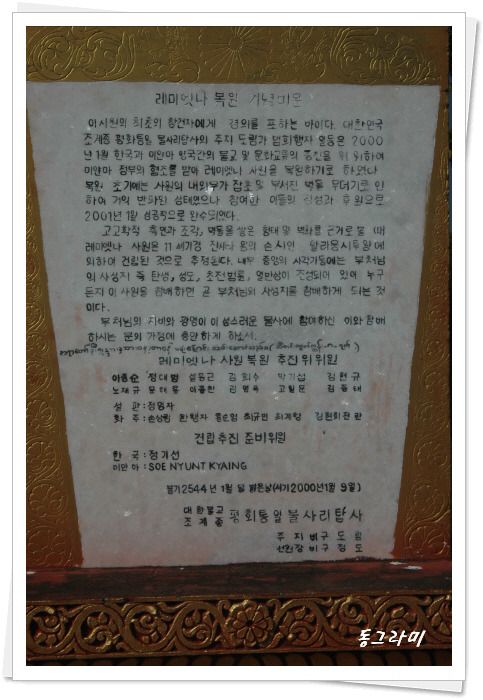 레미엣나 복원 기념비문
이 사원의 최초의 창건자에게 경의를 표하는 바이다. 대한민국
조계종 평화통일 불사리탑사의 주지 도림과 법회행자 일동은 2000
년 1월 한국과 미얀마 양국간의 불교 및 문화교류의 증진을 위하여
미얀마 정부의 협조를 받아 레미엣나 사원을 복원하기로 하였다.
복원 초기에는 사원의 내외부가 잡초 및 부서진 벽돌 무더기로 인
하여 거의 반파된 상태였으나 참여한 이들의 정성과 후원으로
2001년 1월 성공적으로 완수되었다.
고고학적 측면과 조각, 벽돌을 쌓은 형태 및 벽화를 근거로 볼 때
레미엣나 사원은 11세기경 짠시타 왕의 손자인 알라웅시투왕에
의하여 건립된 것으로 추정된다. 내부 중앙의 사각기둥에는 부처님
의 사성지 즉 탄생, 성도, 초전법륜, 열반상이 조성되어 있어 누구
든지 이 사원을 참배하면 곧 부처님의 사성지를 참배하게 되는 것
이다.
부처님의 자비와 광명이 이 성스러운 불사에 참여하신 이와 참배
하시는 분의 가정에 충만하게 하소서.
레미엣나 사원 복원 추진위위원
이종순 정대밤 설동근 김희수 박기섭 김현규
노재규 문태룡 이종찬 김영옥 고철문 김동태
설판: 정명자
화주: 손상림 한행자 홍순임 최규민 최계형 김현희 한란
건립추진 준비위원
한국: 정기선
미얀마: SOE NYUNT KYAING
불기 2544년 1월 밝은날(서기 2000년 1월 9일)
대한불교
조계종 평화통일불사리탑사
주지 비구 도림
선원장 비구 정도
동그라미